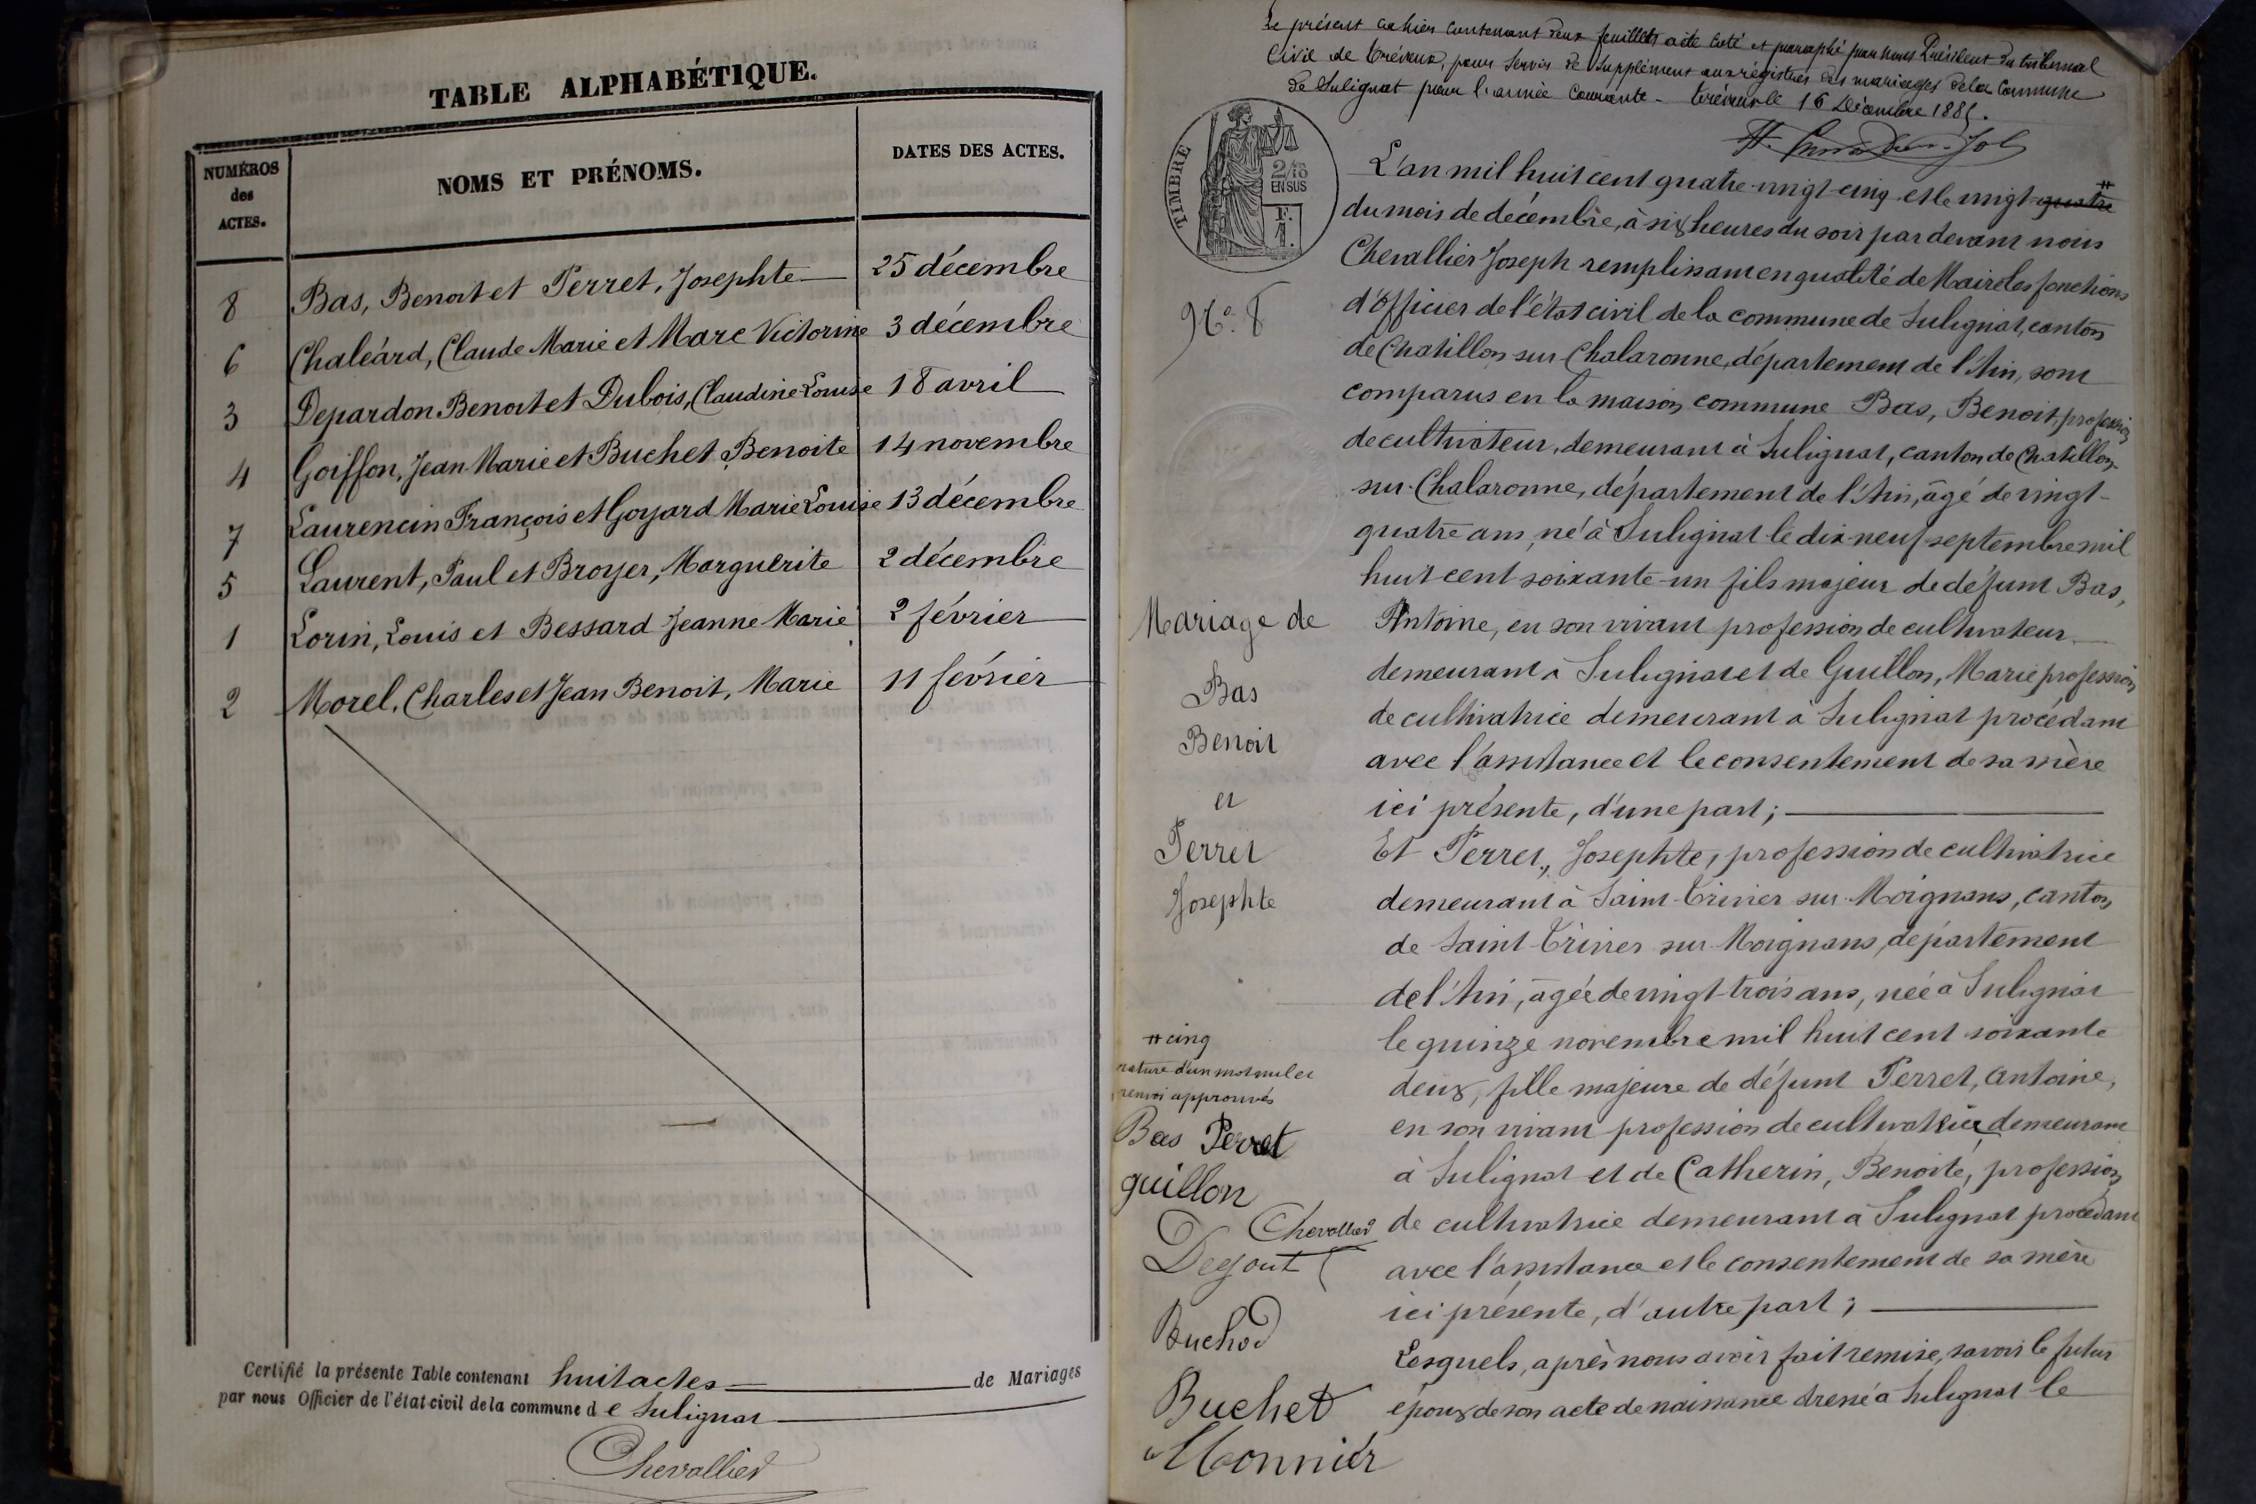 TABLE ALPHABÉTIQUE.
NUMÉROS
des
ACTES.
NOMS ET PRÉNOMS.
DATES DES ACTES.
8 Bas, Benoit et Perret, Josephte 25 décembre
6 Chaléard, Claude Marie et Marc Victorine 3 décembre
3 Depardon Benoit et Dubois, Claudine Louise 18 avril
4 Goiffon, Jean Marie et Buchet Benoite 14 novembre
7 Laurencin François et Goyard Marie Louise 13 décembre
5 Laurent, Paul et Broyer, Marguerite 2 décembre
1 Lorin, Louis et Bessard Jeanne Marie 2 février
2 Morel, Charles et Jean Benoit, Marie 11 février
Certifié la présente Table contenant huit actes de Mariages
par nous Officier de l'état-civil de la commune de Sulignat
Chevallier
Le présent cahier contenant deux feuillets a été coté et paraphé par nous Président du tribunal
civil de Trévoux, pour servir de supplément aux régistres des mariages de la commune
de Sulignat pour l'année courante - Trévoux le 16 Décembre 1885.
TIMBRE
2/10
EN SUS
F.
1.
N.o 8
L'an mil huit cent quatre-vingt-cinq et le vingt-quatre #
du mois de décembre, à six heures du soir par devant nous
Chevallier Joseph remplissant en qualité de Maire les fonctions
d'Officier de l'état civil de la commune de Sulignat, canton
de Chatillon sur Chalaronne, département de l'Ain, sont
comparus en la maison commune Bas, Benoit, profession
de cultivateur, demeurant à Sulignat, canton de Chatillon-
sur-Chalaronne, département de l'Ain, âgé de vingt-
quatre ans, né à Sulignat le dix-neuf septembre mil
huit cent soixante-un fils majeur de défunt Bas,
Antoine, en son vivant profession de cultivateur
demeurant à Sulignat et de Guillon, Marie profession
de cultivatrice demeurant à Sulignat procédant
avec l'assistance et le consentement de sa mère
ici présente, d'une part;
Et Perret, Josephte, profession de cultivatrice
demeurant à Saint-Trivier sur Moignans, canton
de Saint-Trivier sur Moignans, département
de l'Ain, âgée de vingt-trois ans, née à Sulignat
le quinze novembre mil huit cent soixante
deux, fille majeure de défunt Perret, Antoine,
en son vivant profession de cultivateur demeurant
à Sulignat et de Catherin, Benoite, profession
de cultivatrice demeurant à Sulignat procédant
avec l'assistance et le consentement de sa mère
ici présente, d'autre part;
Lesquels, après nous avoir fait remise, savoir le futur
époux de son acte de naissance dressé à Sulignat le
Mariage de
Bas
Benoit
et
Perret
Josephte
# cinq
rature d'un mot nul et
renvoi approuvés
Bas Perret
guillon
Chevallier
Degout
Buchod
Buchet
Monnier